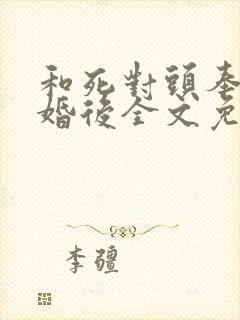 和死對頭奉
婚後全文免
李疆